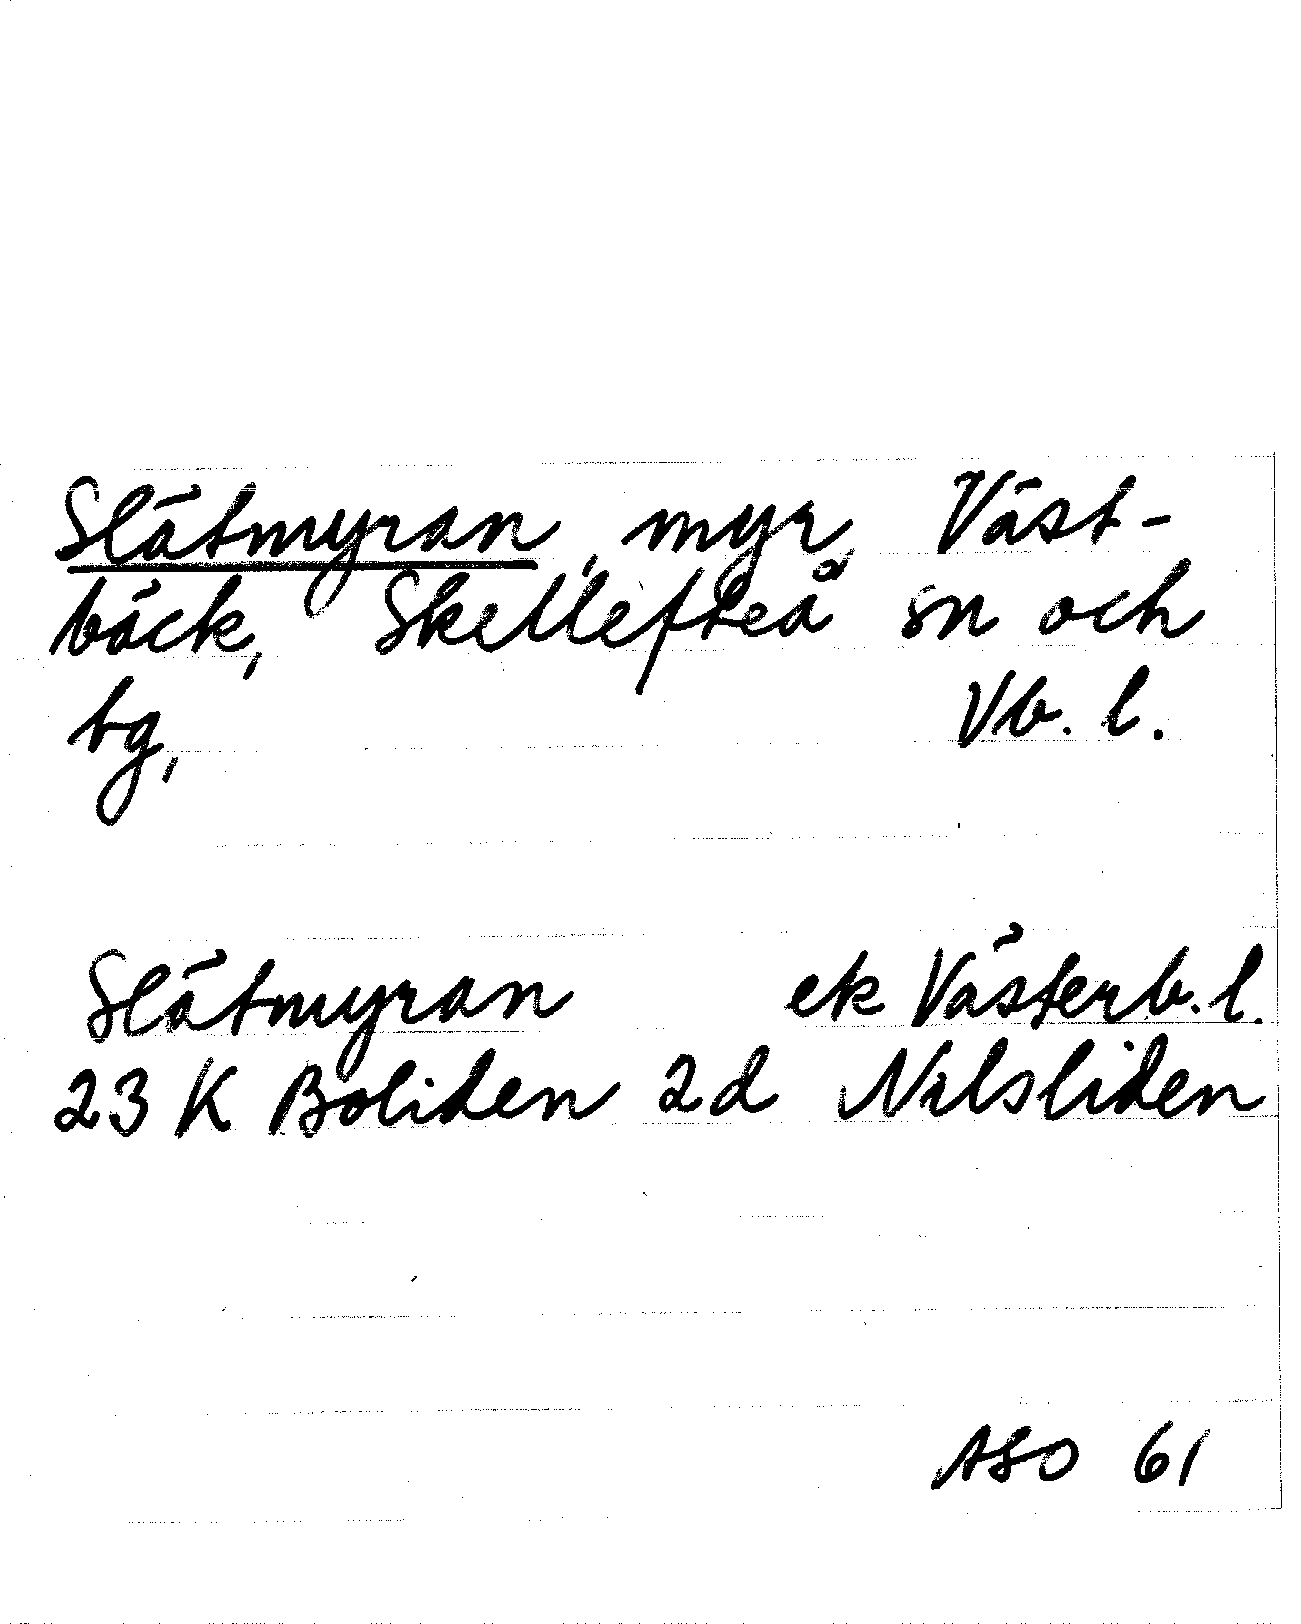 Slätmyran, myr, Väst-
bäck, Skellefteå sn och
tg, Vb. l.
Slätmyran ek Västerb. l.
23 K Boliden 2d Nilsliden
ASO 61